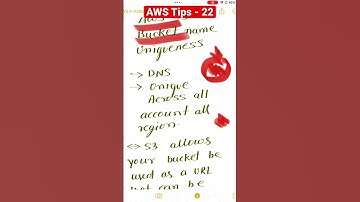 AWS Tips - 22
Bucket name
Uniqueness
-> DNS
-> Unique
Across all
account all
region.
<-> S3 allows
your bucket be
used as a URL
that can be